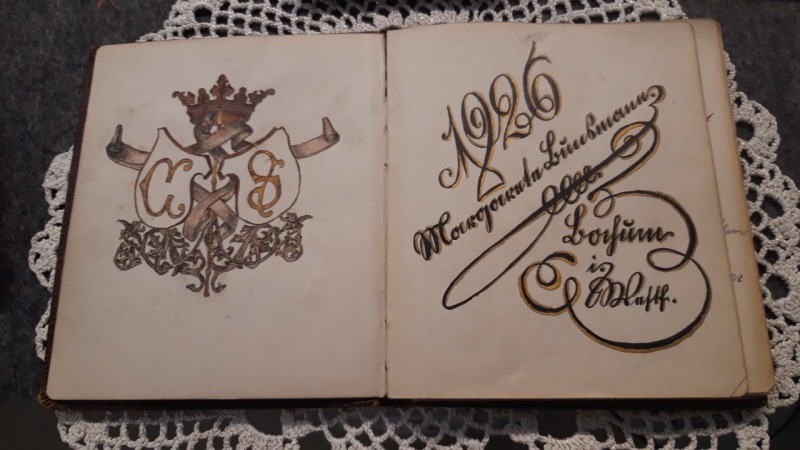 1926
Margarete Bunsmann
Bochum
i/
Westf.